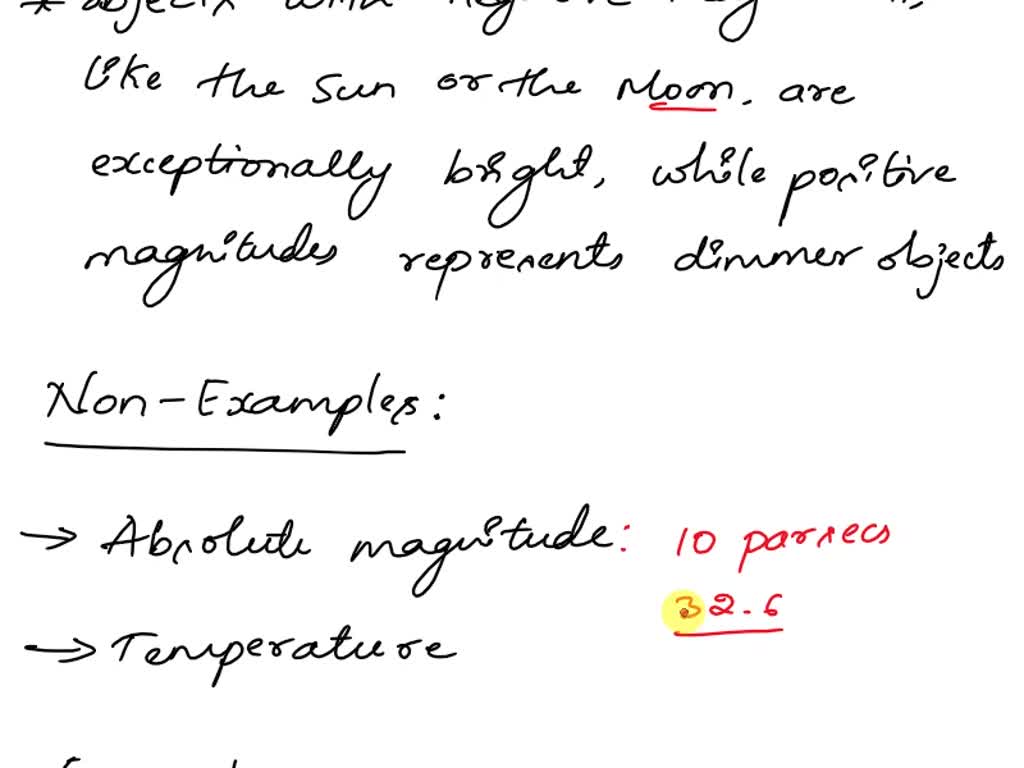 * objects with
like the Sun or the Moon. are
exceptionally bright, while positive
magnitudes represents dimmer objects
Non-Examples:
→ Absolute magnitude: 10 parsecs
32.6
→ Temperature